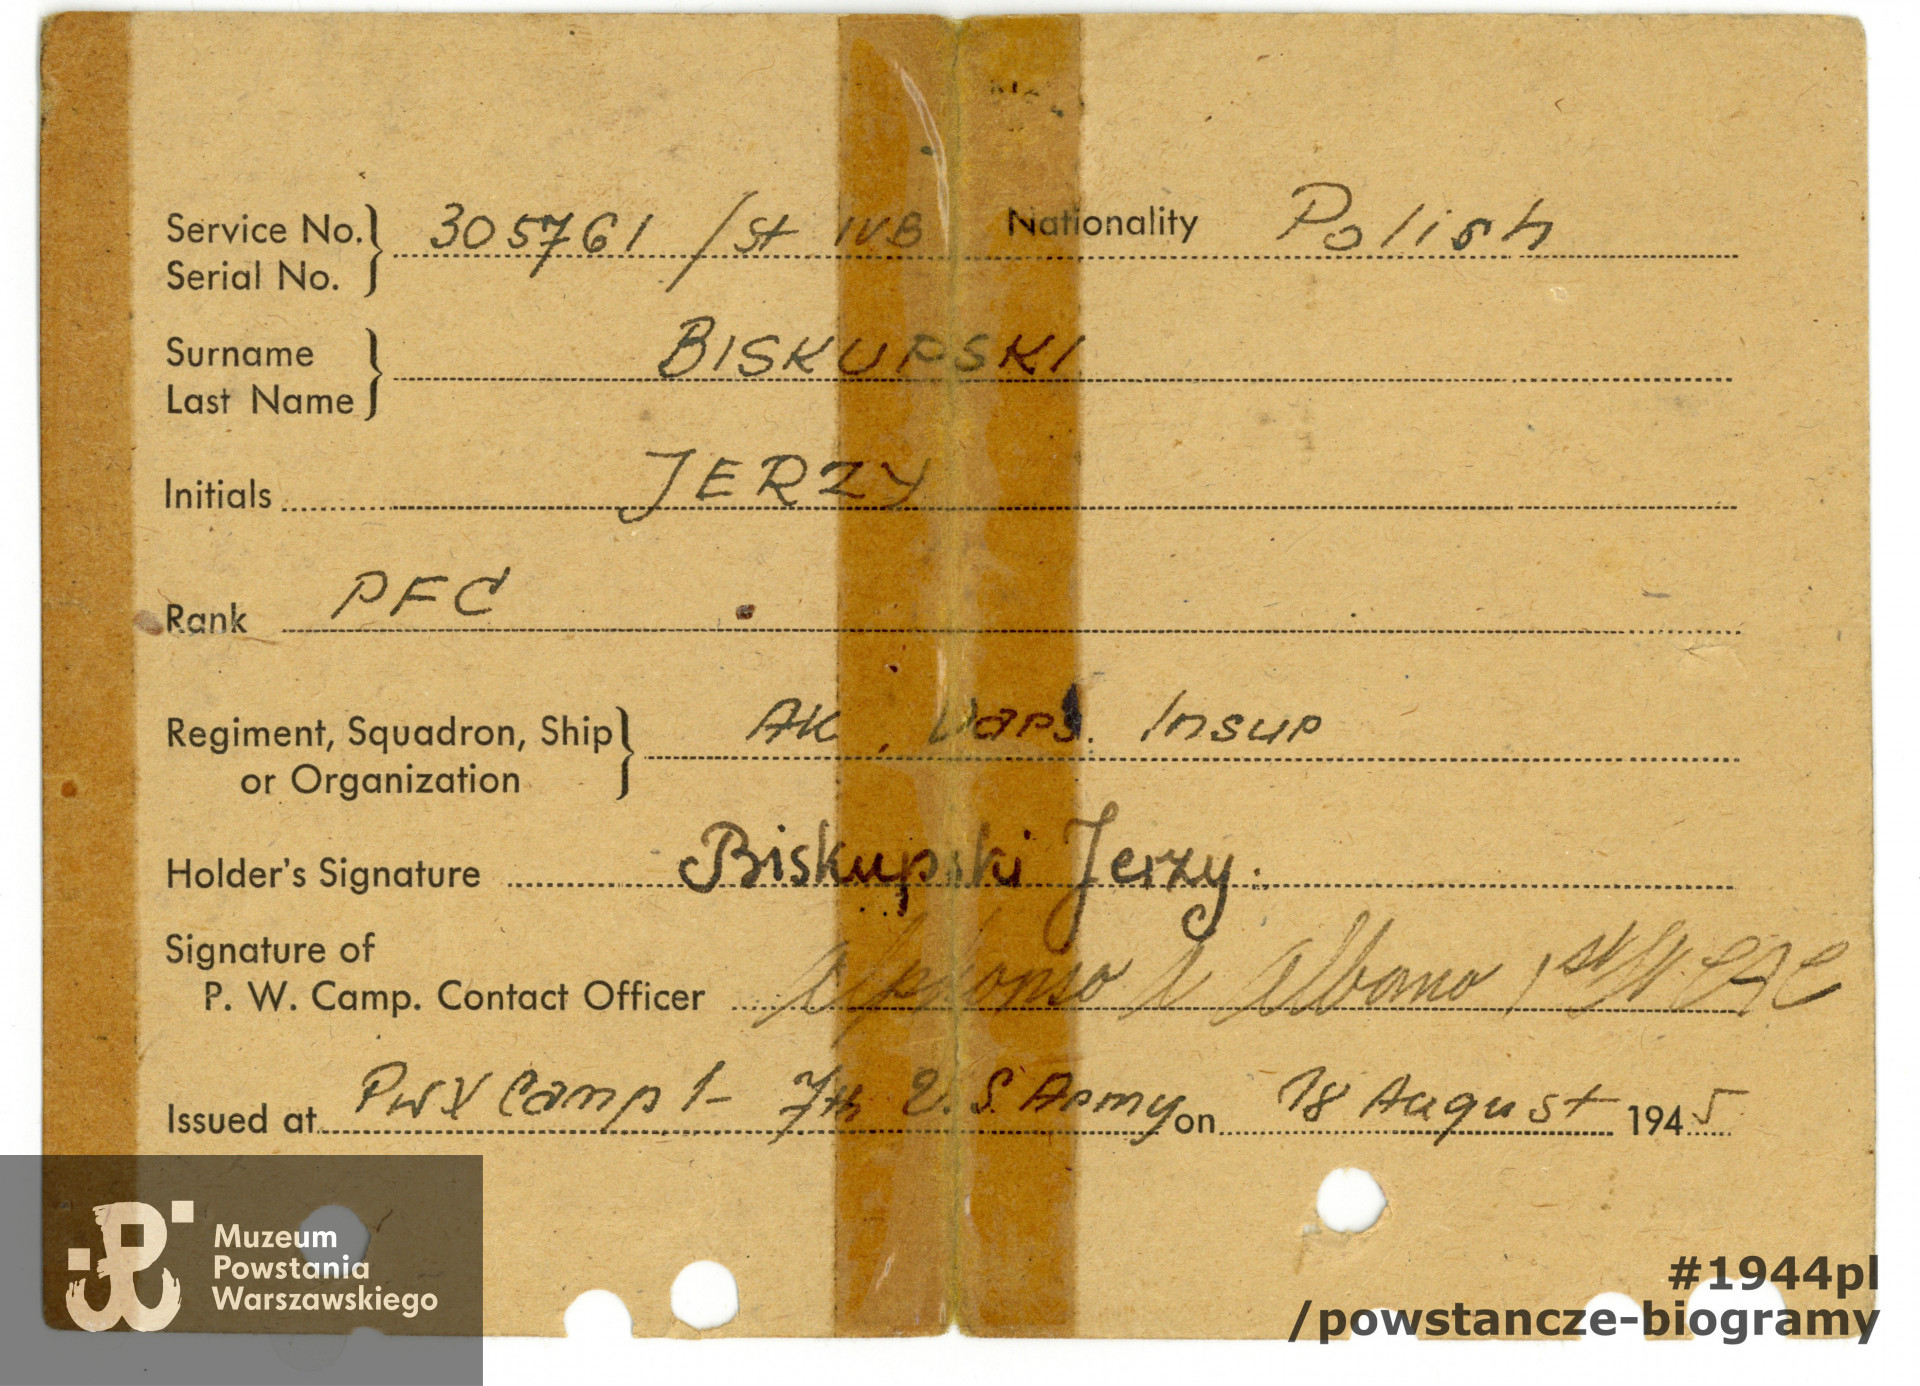 Service No. } 305761 /St IVB Nationality Polish
Serial No.
Surname } BISKUPSKI
Last Name
Initials JERZY
Rank PFC
Regiment, Squadron, Ship } AK, Vars. Insup
or Organization
Holder's Signature Biskupski Jerzy.
Signature of
P. W. Camp. Contact Officer Alphonso A Albano 1st Lt. CAC
Issued at PWX Camp 1- 7th U.S. Army on 18 August 1945
Muzeum
Powstania
Warszawskiego
#1944pl
/powstancze-biogramy